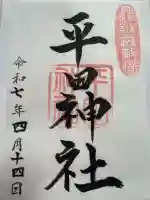 平田神社
令和七年四月十四日